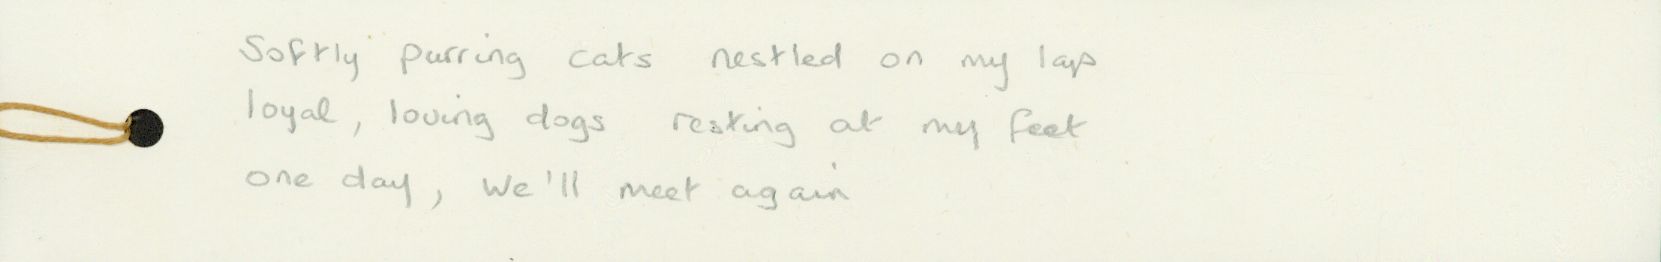 Softly purring cats nestled on my lap
loyal, loving dogs resting at my feet
one day, we'll meet again